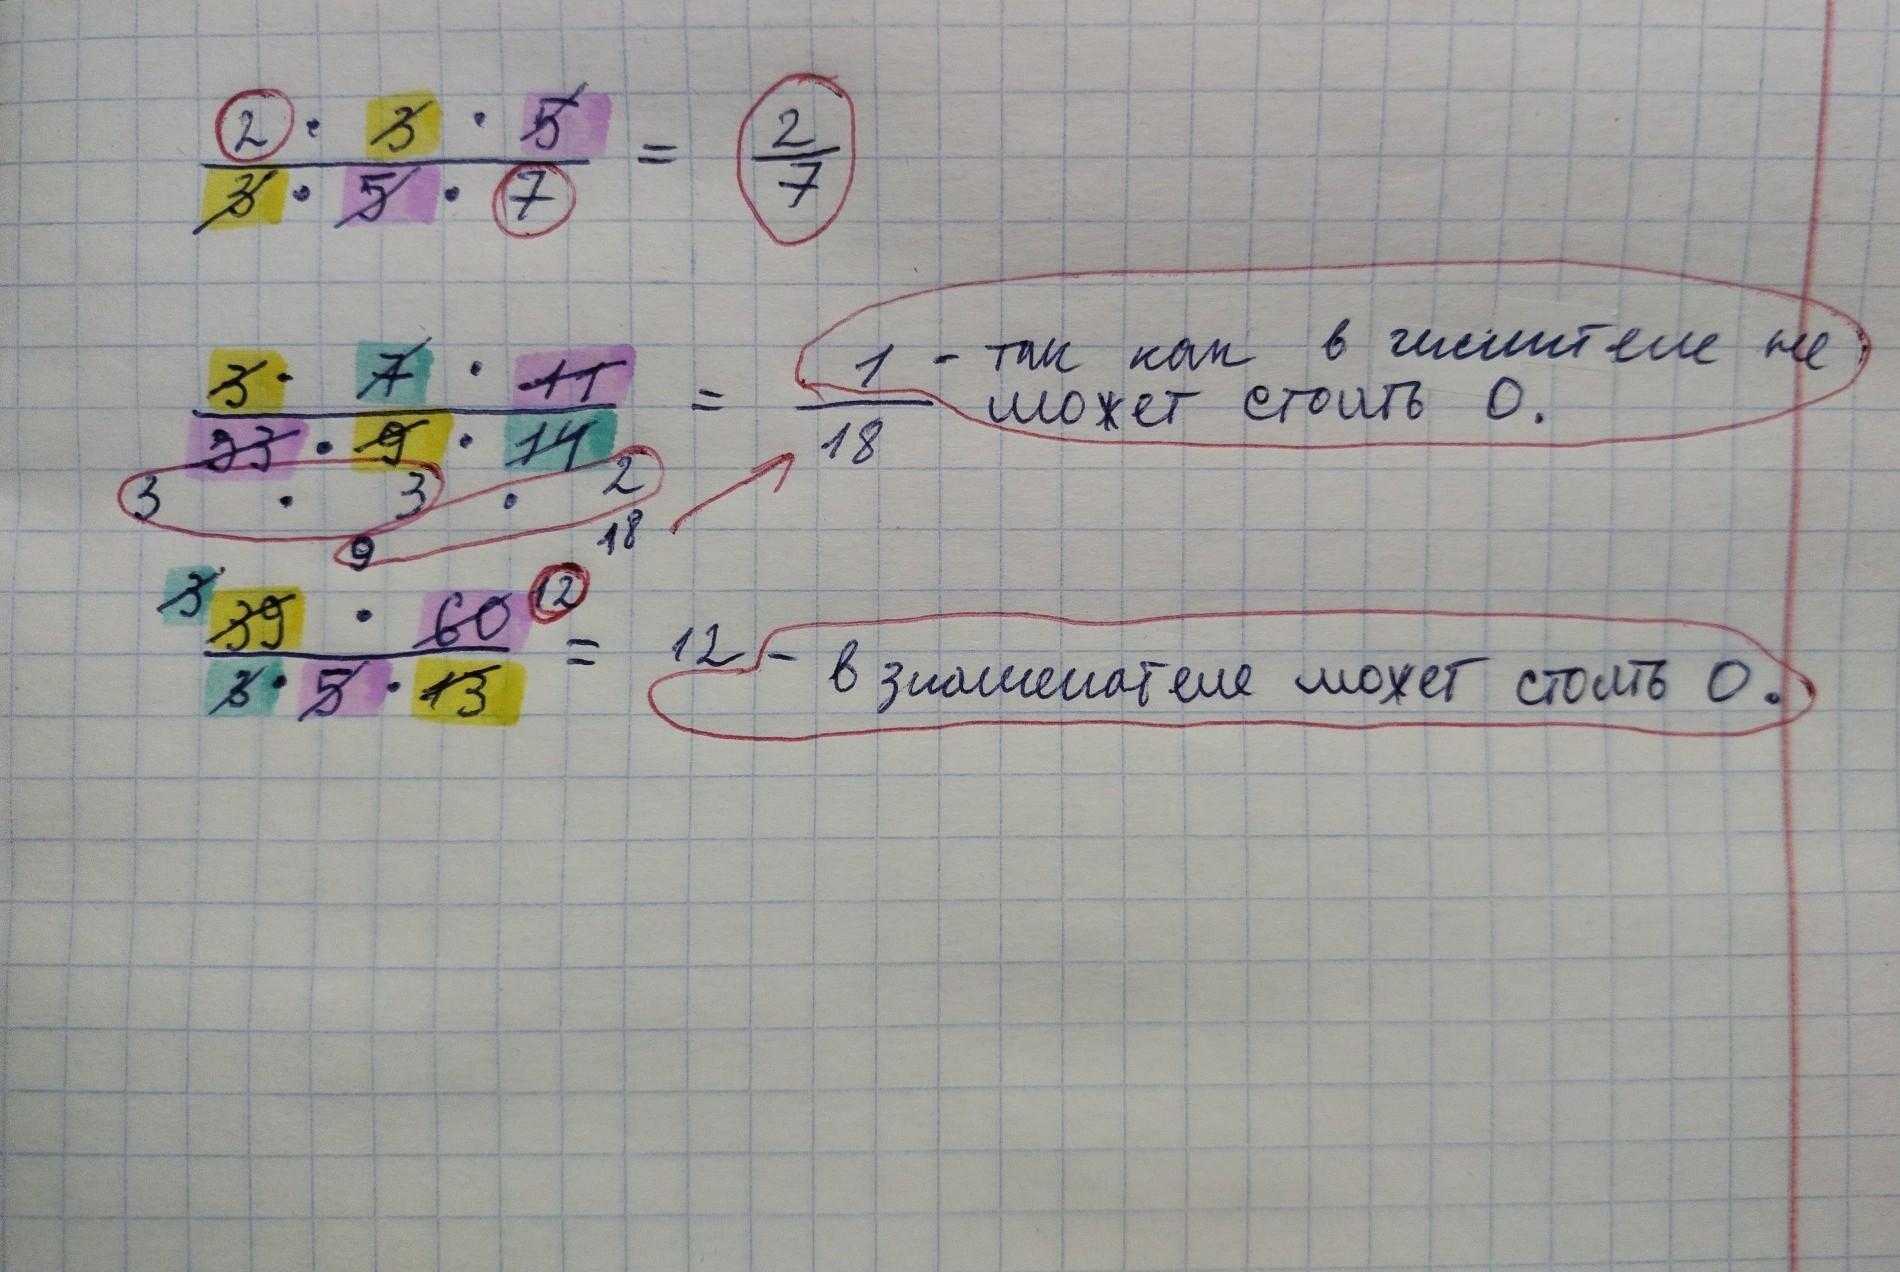 2 · 3 · 5
3 · 5 · 7
= 2/7
3 · 7 · 11
33 · 9 · 14
3 · 3 · 2
9 18
= 1/18 - так как в числителе не
может стоять 0.
3 39 · 60 12
3 · 5 · 13
= 12 - в знаменателе может стоять 0.